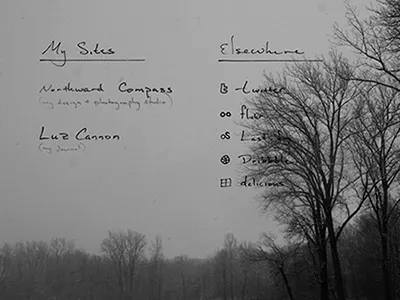 My Sites
Northward Compass
(my design + photography studio)
Luz Cannon
(my journal)
Elsewhere
twitter
flickr
Last.fm
Dribbble
delicious